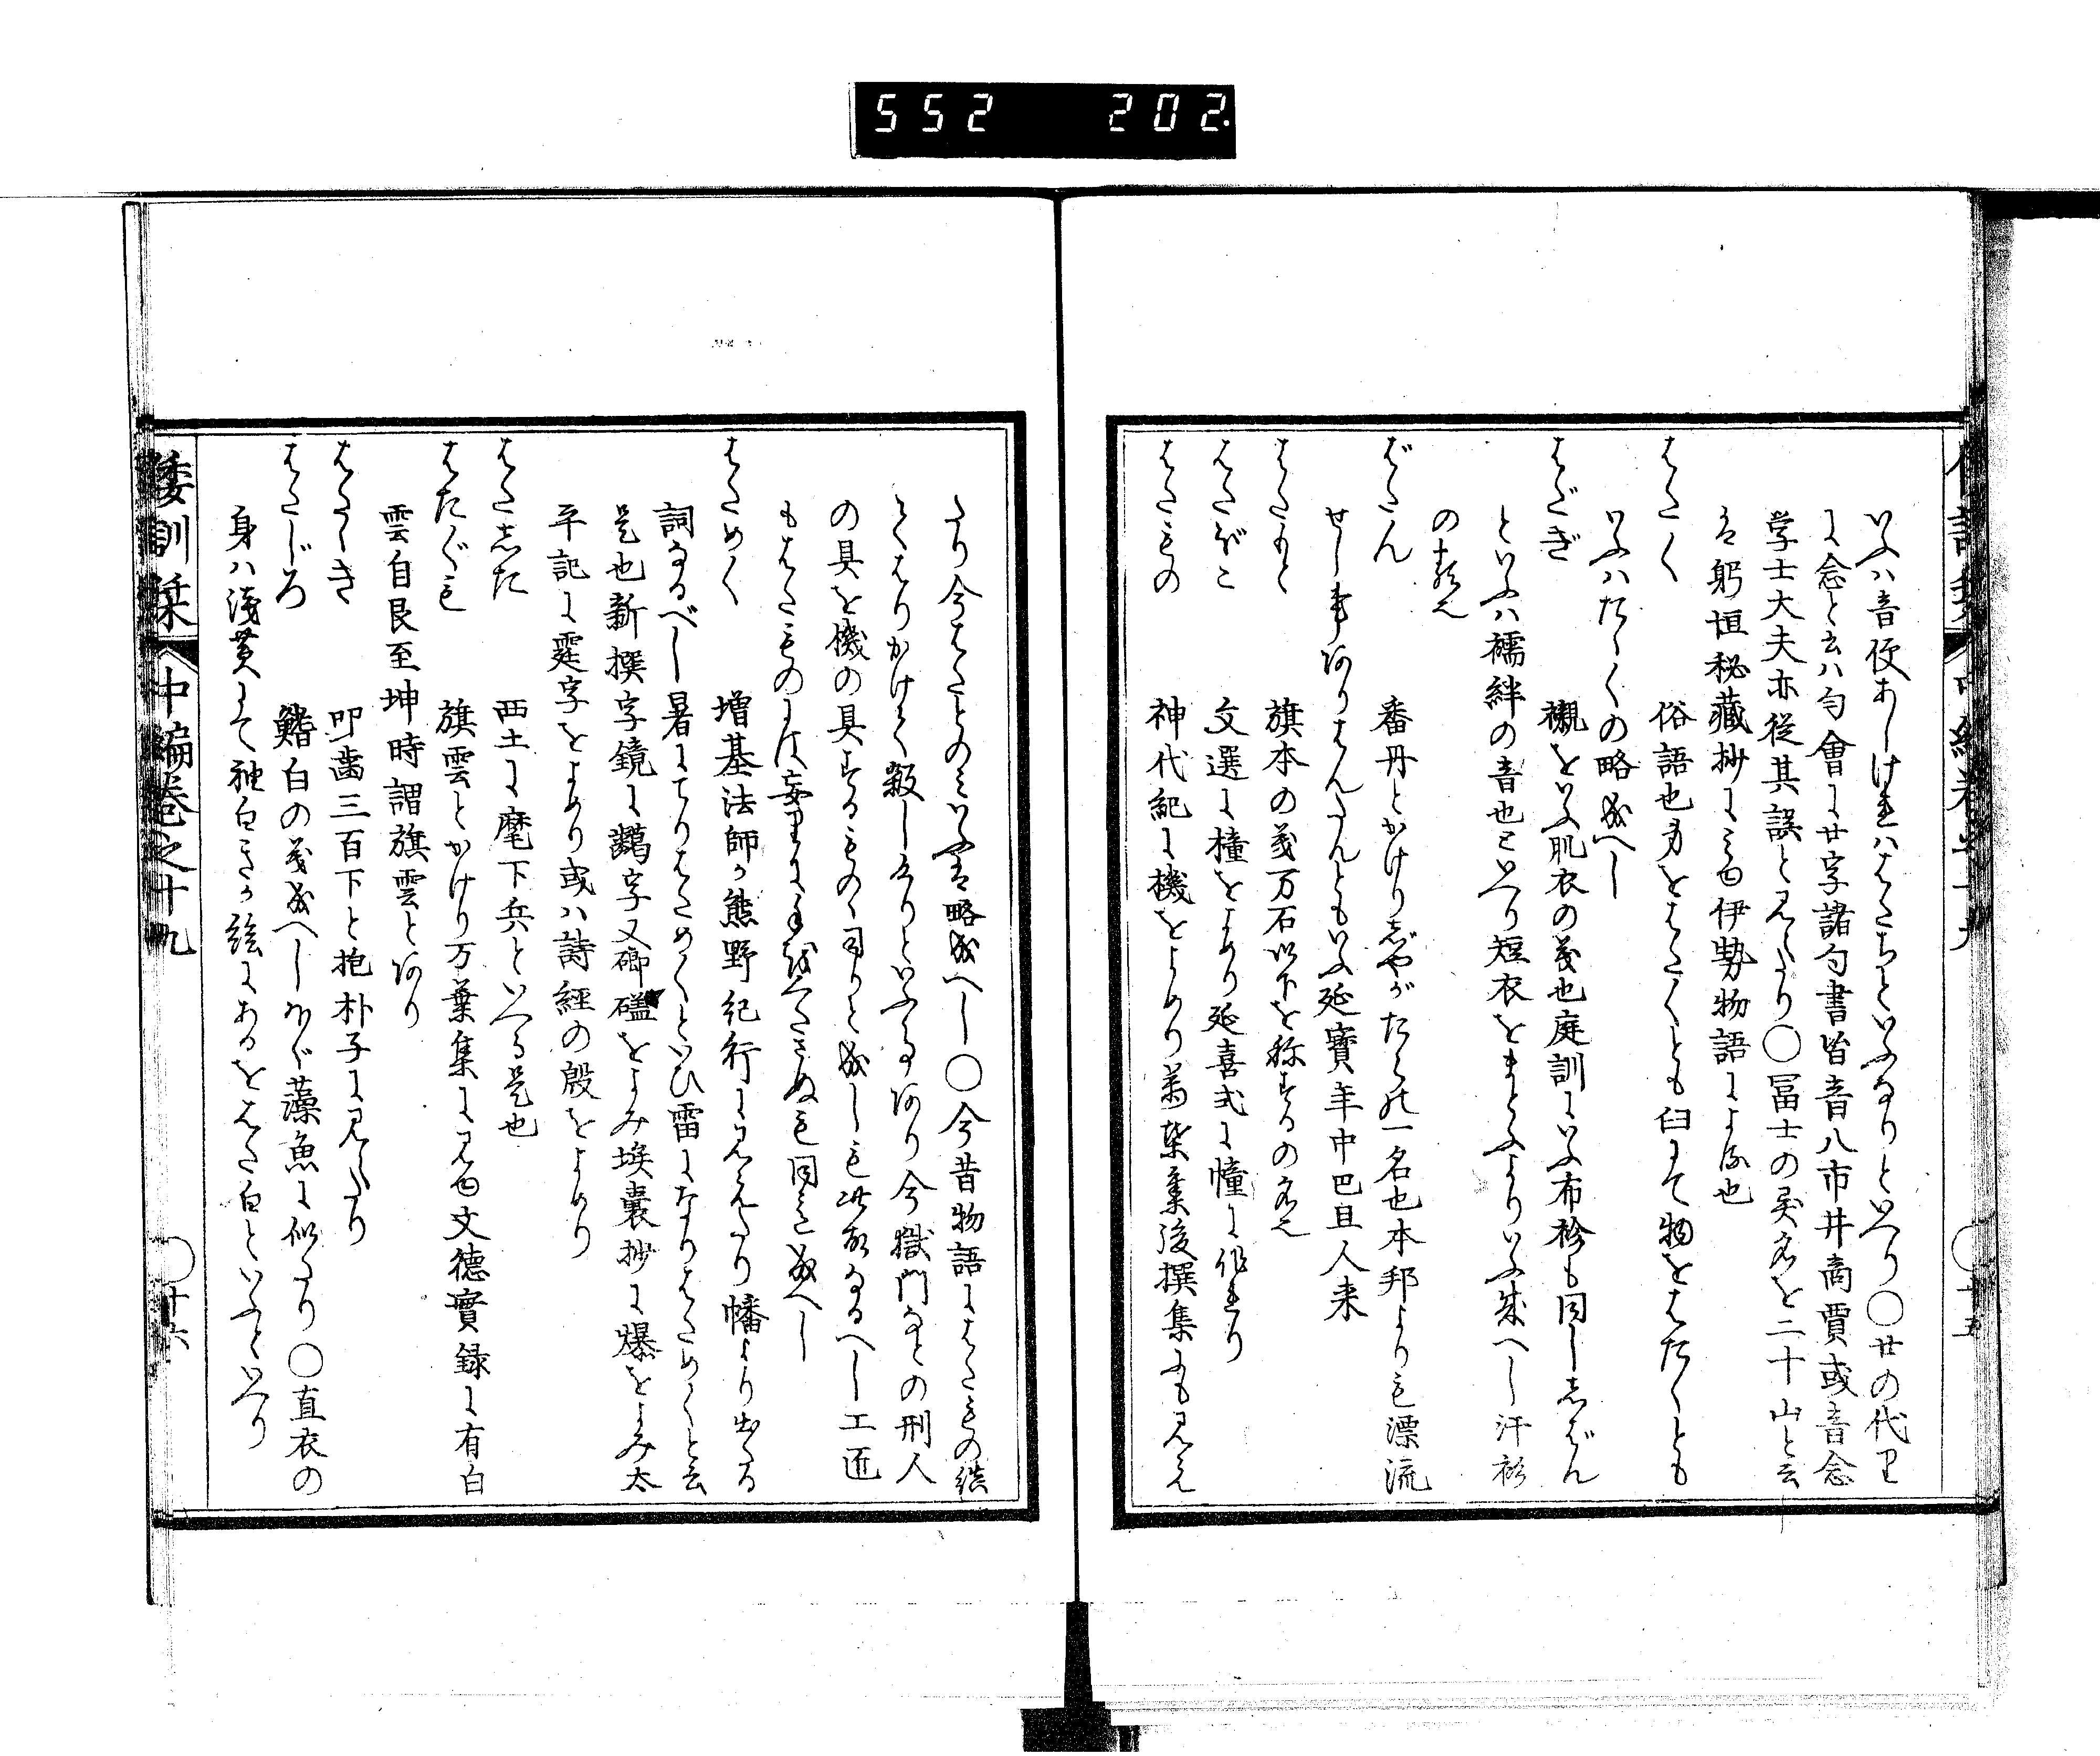 552 202.
いふハ音便あしけれハはたちといふなりといへり○廿の代里
に念と云ハ匀會に廿字諸匀書皆音八市井商賈或音念
学士大夫亦従其誤と見えたり○冨士の異名を二十山と云
は躬恒秘藏抄にみゆ伊勢物語によれる也
はたく 俗語也身をはたくとも臼にて物をはたくとも
いふハたゝくの略成へし
はだぎ 襯をいふ肌衣の義也庭訓にいふ布衫も同しじばん
といふハ襦絆の音也といへり短衣をまとふよりいふ成へし汗衫
の類也
ばたん 番丹とかけりじやがたらの一名也本邦よりも漂流
せし事ありはんたんともいふ延寶年中巴旦人来
はたもと 旗本の義万石以下を称するの名也
はたほこ 文選に橦をよめり延喜式に幢に作れり
はたもの 神代紀に機をよめり萬葉集後撰集にも見え
たり今はたとのみいふは略成へし○今昔物語にはたものゝ
とくはりかけて殺しけりといふ事あり今獄門なとの刑人
の具を機の具するものゝ司りと成しも此故なるへし工匠
もはたものには妄りに手をくたさぬも同意成へし
はためく 増基法師か熊野紀行に見えたり幡より出たる
詞なるべし暑にてりはためくといひ雷になりはためくと云
是也新撰字鏡に字又磤礚をよみ埃嚢抄に爆をよみ太
平記に霆字をよめり或ハ詩経の殷をよめり
はたした 西土に麾下兵といへる是也
はたぐも 旗雲とかけり万葉集に見ゆ文徳實録に有白
雲自艮至坤時謂旗雲とあり
はたゝき 叩齒三百下と抱朴子に見えたり
はたじろ 鰭白の義成へしかく藻魚に似たり○直衣の
身ハ淺黄にて袖白きか繪にあるをはた白といふといへり
倭訓栞 中編巻之十九 ○十六